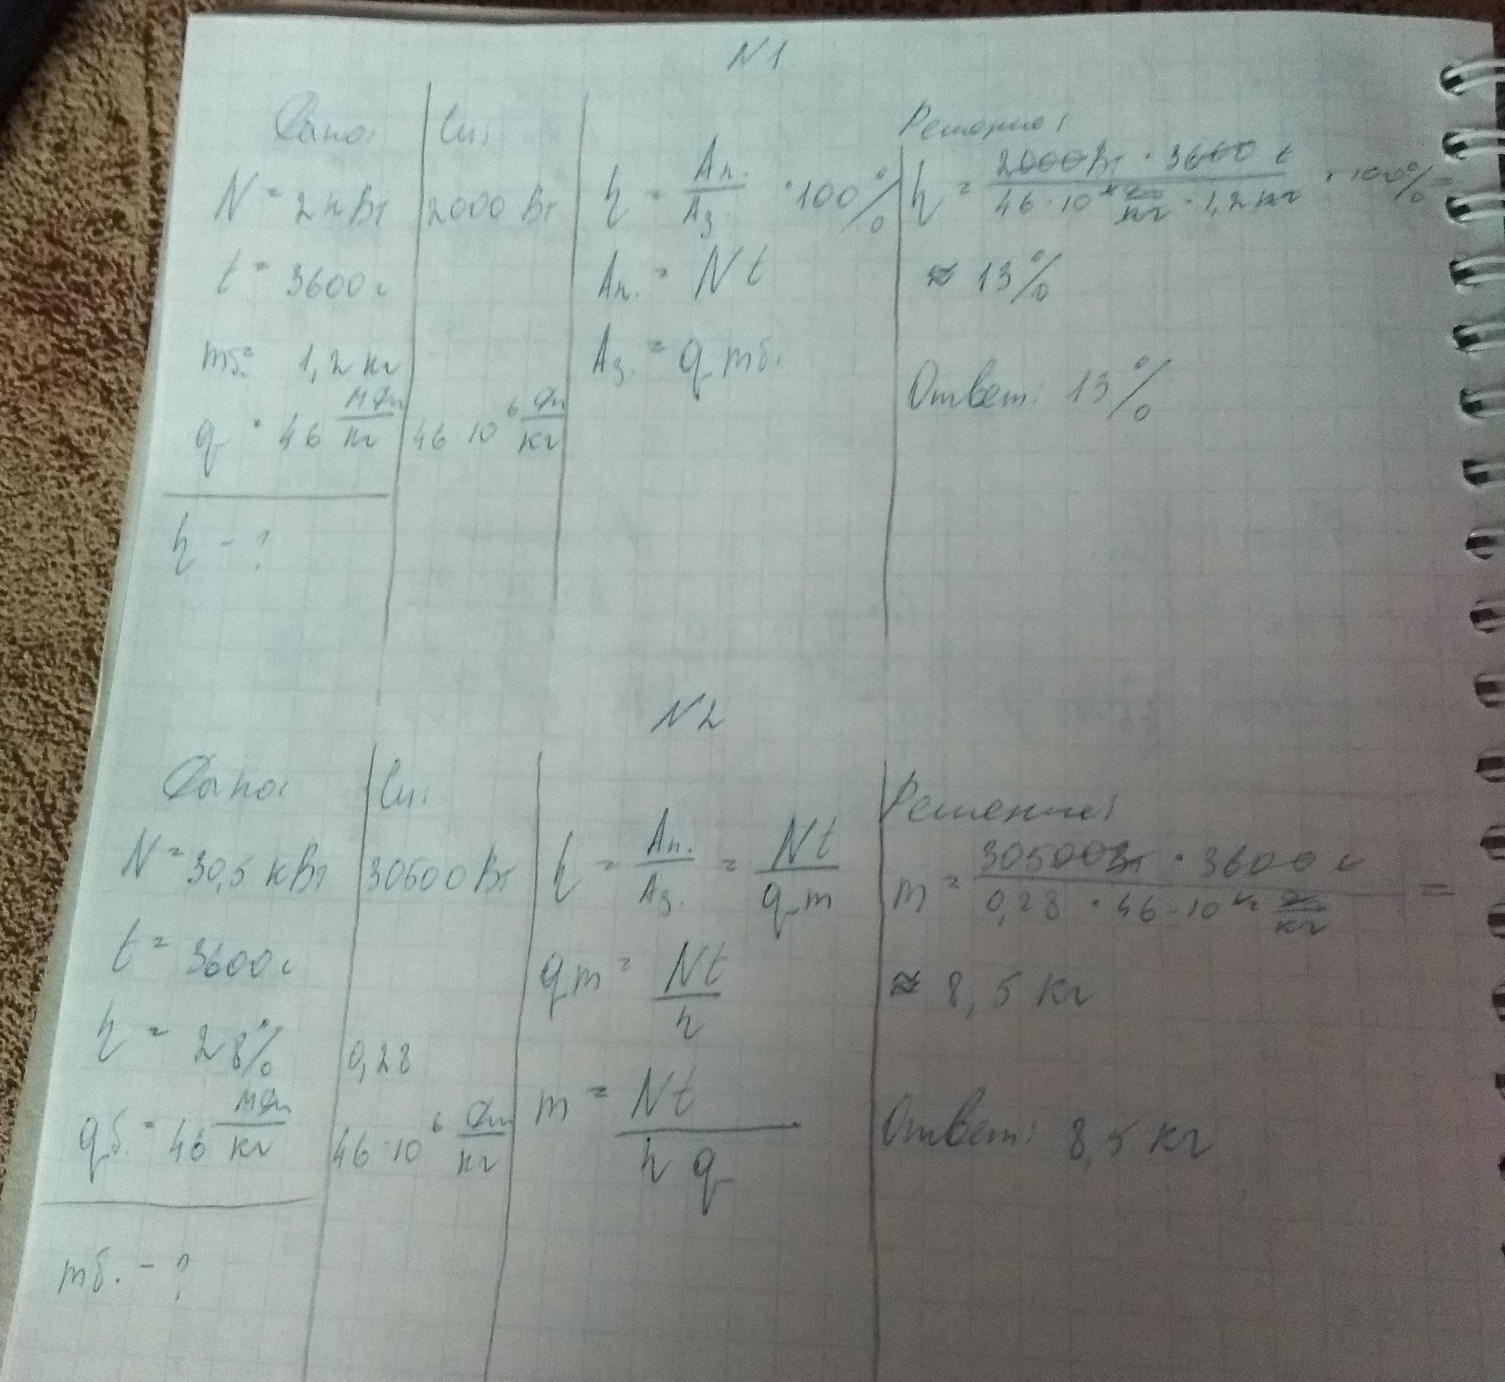 N1
Дано:
N = 2 кВт
t = 3600 с
mб = 1,2 кг
q = 46 МДж/кг
η - ?
Си:
2000 Вт
46·10⁶ Дж/кг
η = Aп./Aз. · 100%
Aп. = Nt
Aз. = q mб.
Решение:
η = 2000Вт · 3600 с / 46·10 Дж/кг · 1,2 кг · 100% =
≈ 13%
Ответ: 13%
N2
Дано:
N = 30,5 кВт
t = 3600 с
η = 28%
qб. = 46 МДж/кг
mб. - ?
Си:
30500 Вт
0,28
46·10⁶ Дж/кг
η = Aп./Aз. = Nt/qm
qm = Nt/η
m = Nt/η q
Решение:
m = 30500Вт · 3600 с / 0,28 · 46·10⁴ Дж/кг =
≈ 8,5 кг
Ответ: 8,5 кг